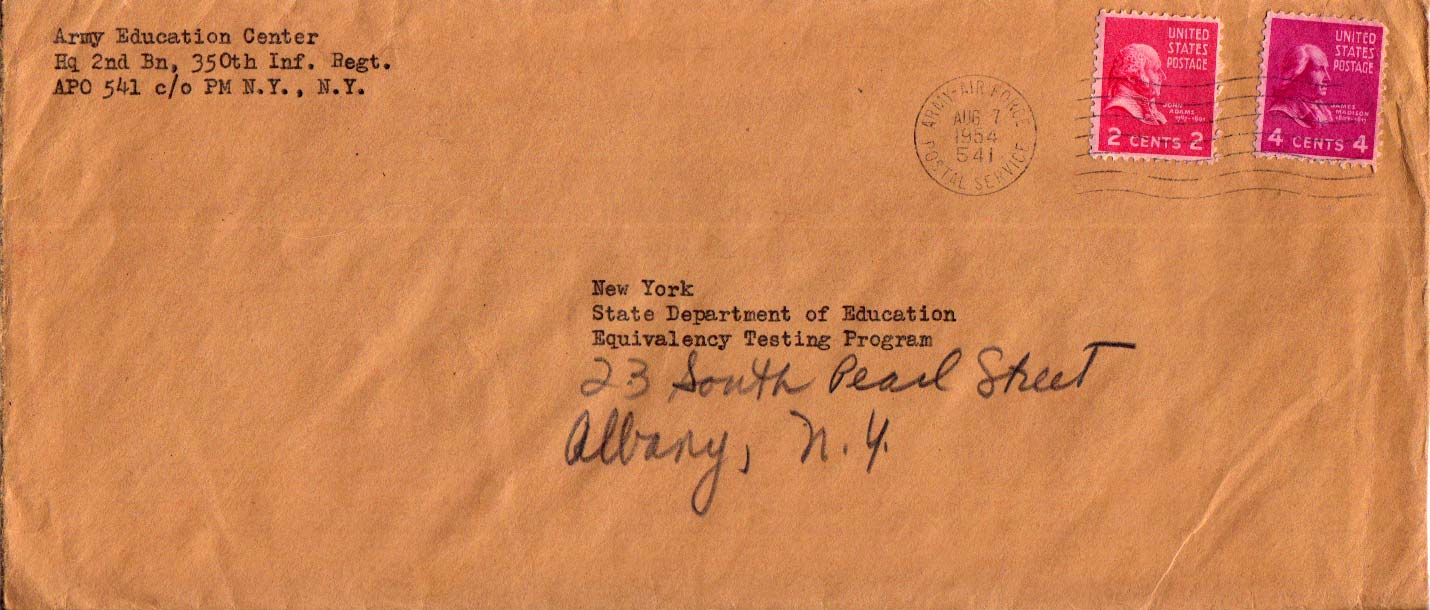 Army Education Center
Hq 2nd Bn, 350th Inf. Regt.
APO 541 c/o PM N.Y., N.Y.
ARMY-AIR FORCE
AUG 7
1954
541
POSTAL SERVICE
UNITED
STATES
POSTAGE
JOHN
ADAMS
1797-1801
2 CENTS 2
UNITED
STATES
POSTAGE
JAMES
MADISON
1809-1817
4 CENTS 4
New York
State Department of Education
Equivalency Testing Program
23 South Pearl Street
Albany, N.Y.